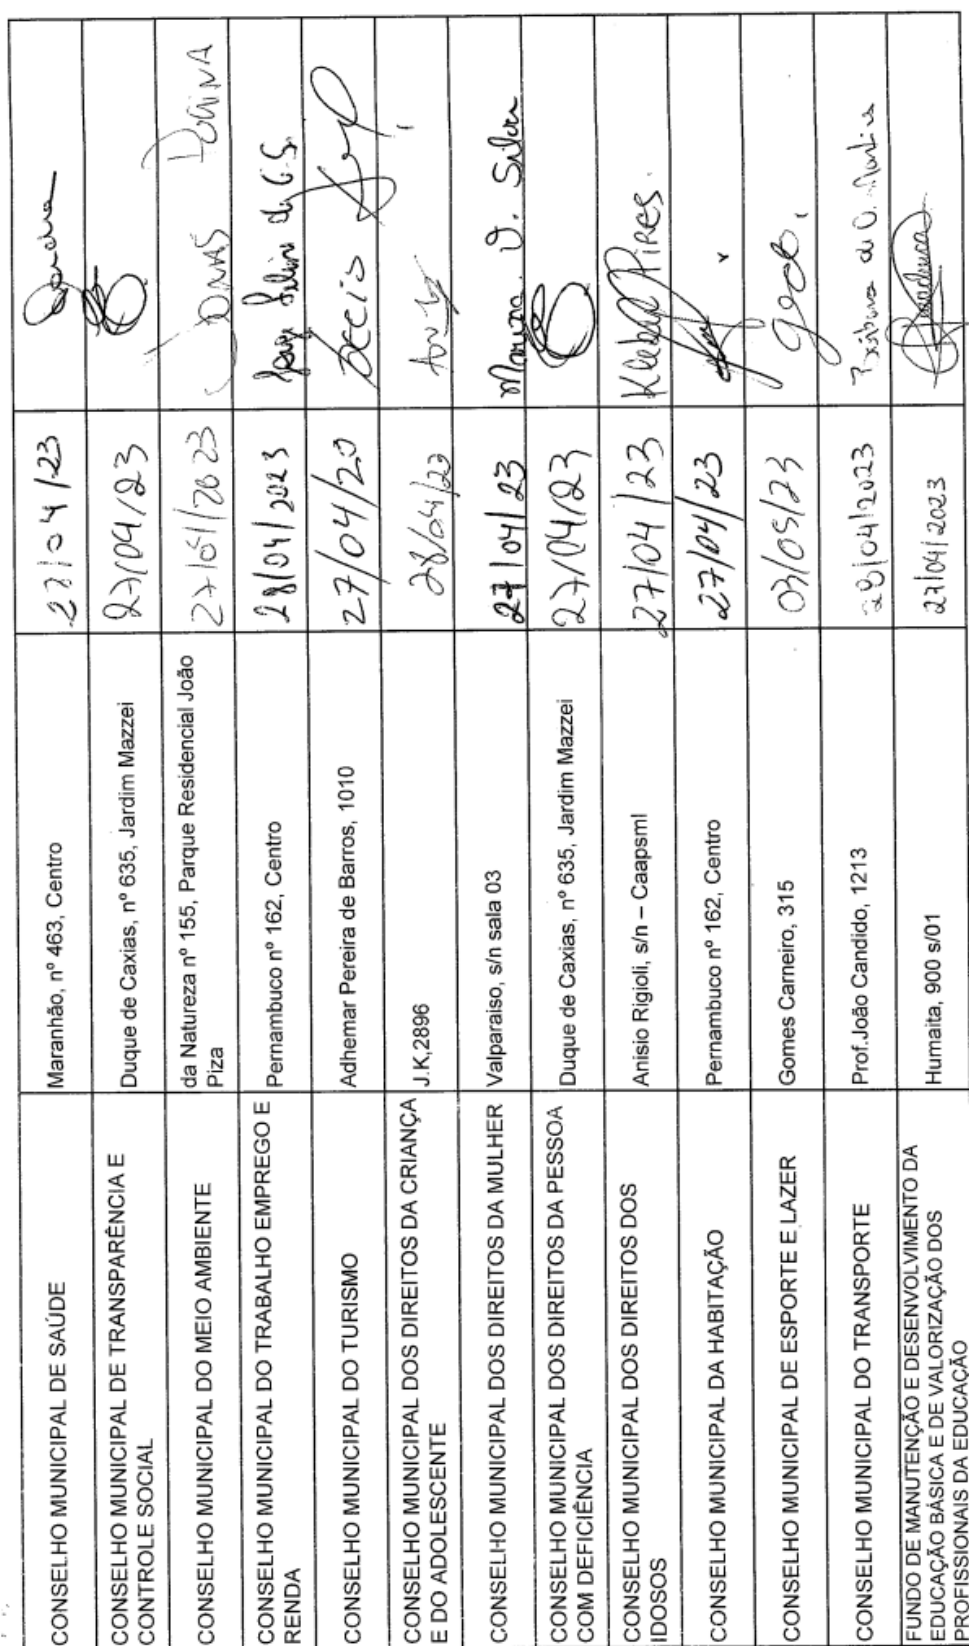 CONSELHO MUNICIPAL DE SAÚDE
Maranhão, nº 463, Centro
27/04/23
Sandra
CONSELHO MUNICIPAL DE TRANSPARÊNCIA E
CONTROLE SOCIAL
Duque de Caxias, nº 635, Jardim Mazzei
27/04/23
CONSELHO MUNICIPAL DO MEIO AMBIENTE
da Natureza nº 155, Parque Residencial João
Piza
2023
JONAS
CONSELHO MUNICIPAL DO TRABALHO EMPREGO E
RENDA
Pernambuco nº 162, Centro
28/04/2023
CONSELHO MUNICIPAL DO TURISMO
Adhemar Pereira de Barros, 1010
27/04/20
CONSELHO MUNICIPAL DOS DIREITOS DA CRIANÇA
E DO ADOLESCENTE
J.K,2896
CONSELHO MUNICIPAL DOS DIREITOS DA MULHER
Valparaiso, s/n sala 03
27/04/23
Silva
CONSELHO MUNICIPAL DOS DIREITOS DA PESSOA
COM DEFICIÊNCIA
Duque de Caxias, nº 635, Jardim Mazzei
27/04/23
CONSELHO MUNICIPAL DOS DIREITOS DOS
IDOSOS
Anisio Rigioli, s/n – Caapsml
27/04/23
Kleber PIRES.
CONSELHO MUNICIPAL DA HABITAÇÃO
Pernambuco nº 162, Centro
27/04/23
CONSELHO MUNICIPAL DE ESPORTE E LAZER
Gomes Carneiro, 315
03/05/23
CONSELHO MUNICIPAL DO TRANSPORTE
Prof.João Candido, 1213
28/04/2023
FUNDO DE MANUTENÇÃO E DESENVOLVIMENTO DA
EDUCAÇÃO BÁSICA E DE VALORIZAÇÃO DOS
PROFISSIONAIS DA EDUCAÇÃO
Humaita, 900 s/01
27/04/2023